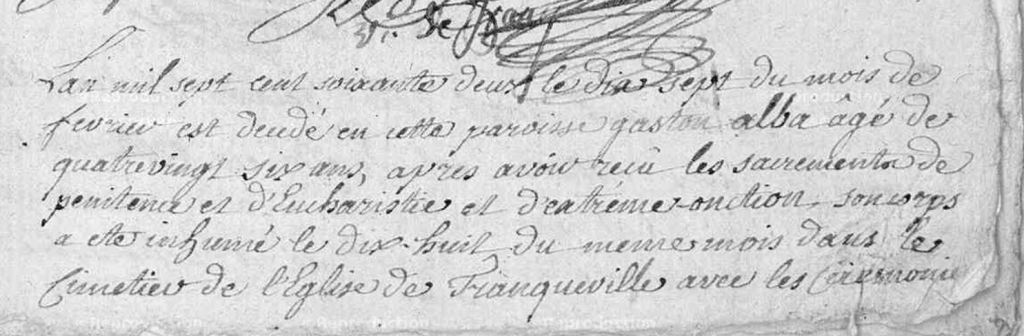 de fran
Lan mil sept cent soixante deux le dix sept du mois de
fevrier est decedé en cette paroisse gaston alba âgé de
quatrevingt six ans, apres avoir recû les sacrements de
penitence et d'Eucharistie et d'extrême-onction son corps
a eté inhumé le dix-huit du meme mois dans le
Cimetier de l'Eglise de Franqueville avec les Cérémonie